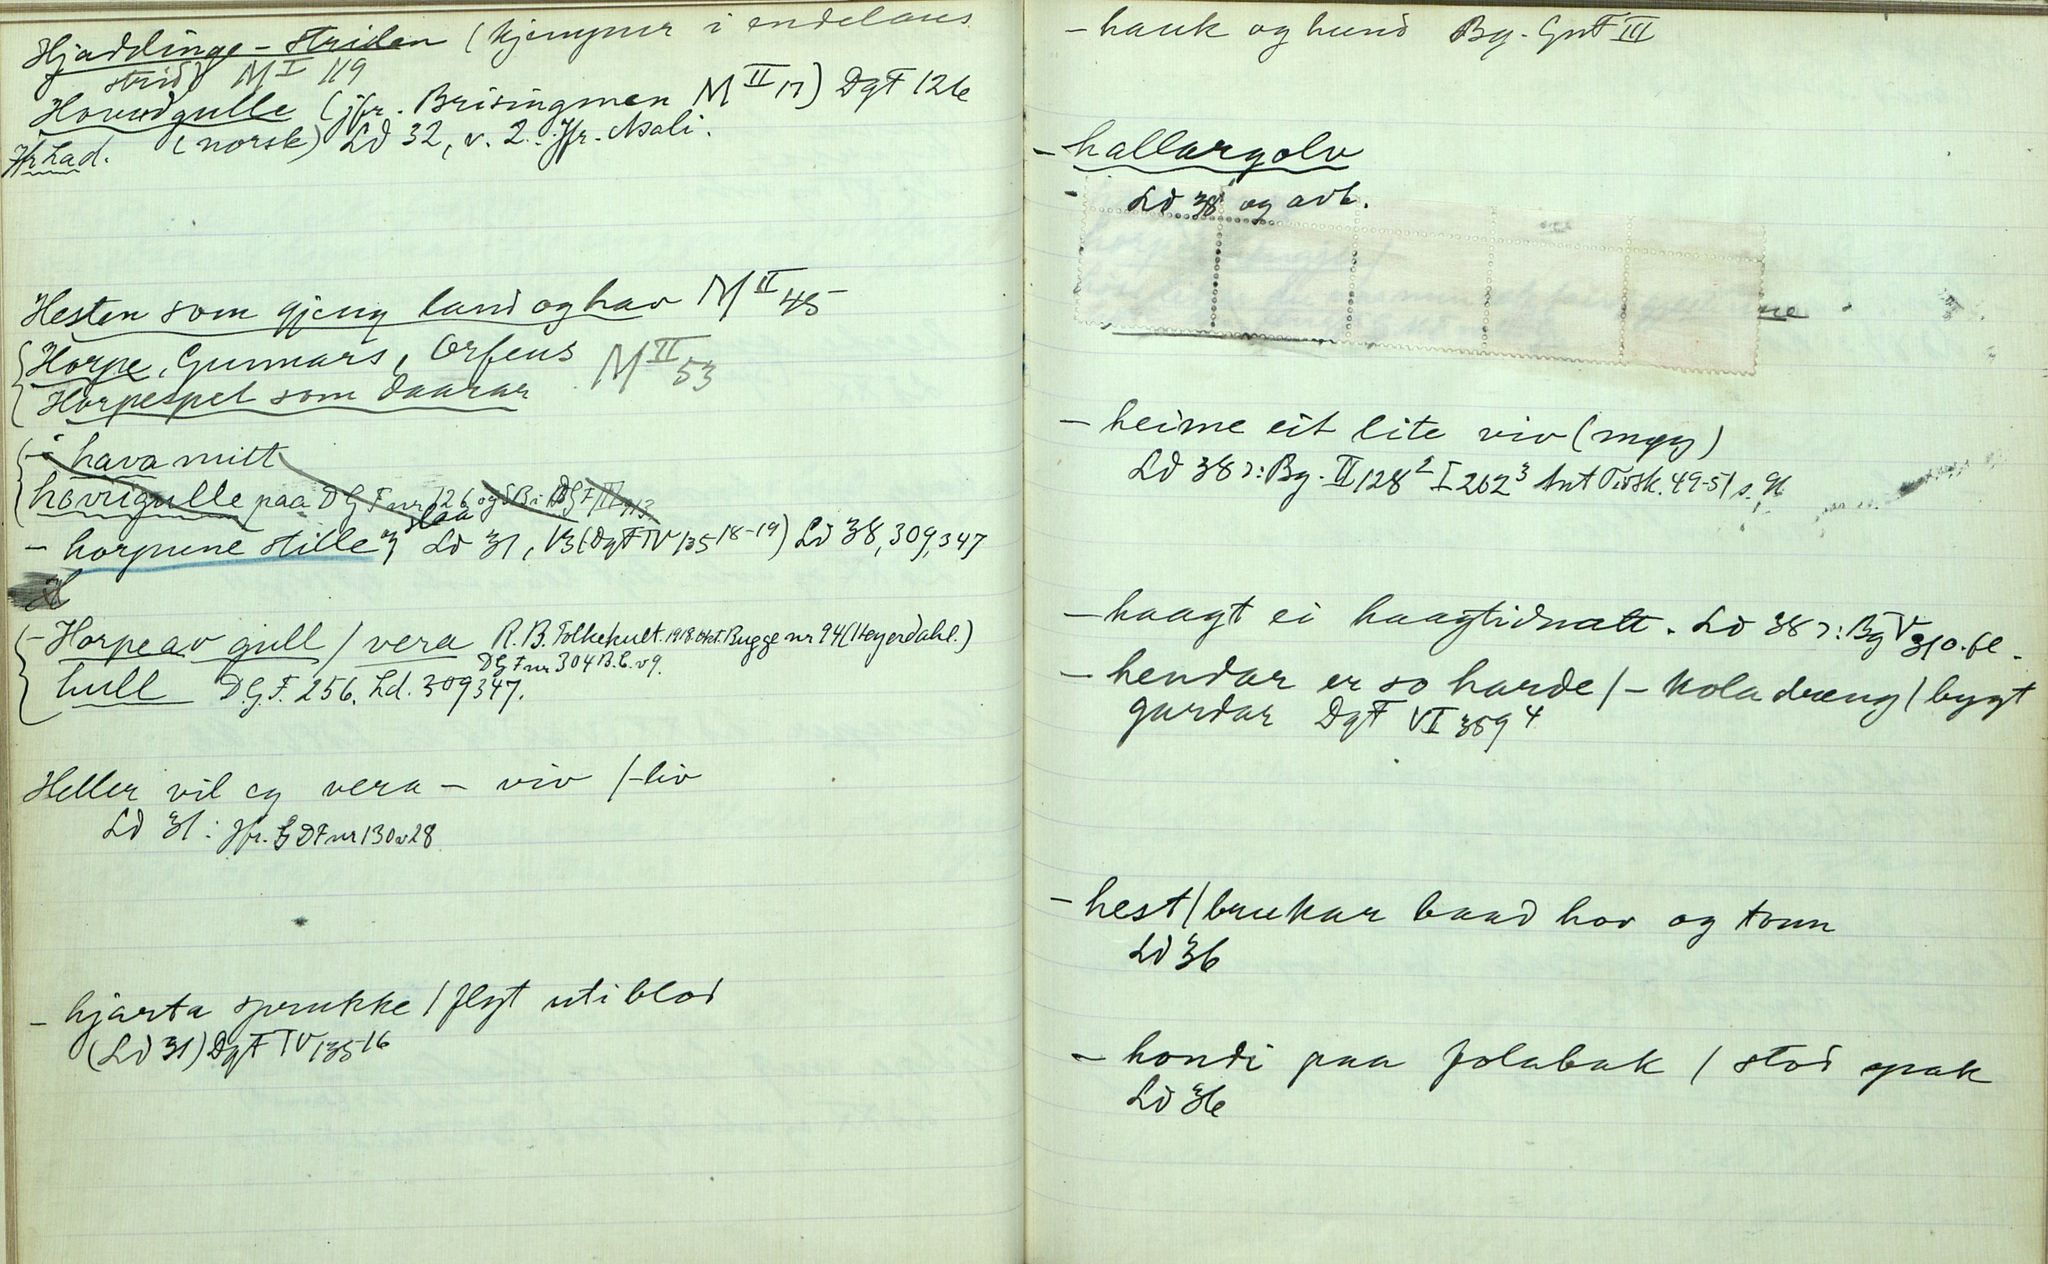 Hjadninge-striden (kjemper i endelaus
strid) M I 119
Hovudgulle (jfr. Brisingmen M II 17) DgF 126
Jfr Lad. (norsk) Ld 32, v. 2. Jfr. Asali.
Hesten som gjeng land og hav M II 45
Horpe, Gunnars, Orfeus M II 53
Horpespel som daarar
- i hava mitt
hovugulle paa DGF nr 126 og
- horpune stille, slaa Ld 31, V3 (DgF IV 135 18-19) Ld 38, 309, 347
- Horpe av gull / vera R.B. Folkekult. 1918. Bugge nr 94 (Heyerdahl.)
DGF nr 304 B.C. v9.
hull DGF. 256. Ld. 309 347.
Heller vil eg vera - viv /-liv
Ld 31: Jfr. DF nr 130 v 28
- hjarta sprukke / flyt uti blod
(Ld 31) DgF IV 135 16
- hauk og hund Bg. GnF III
- hallargolv
- Ld 38 og avb.
- heime eit lite viv (møy)
Ld 38 ɔ: Bg. II 128 2 I 202 3 Ant Tidsk. 49-51 s. 91
- haagt ei haagtidnatt. Ld 38 ɔ: Bg V 310. fl.
- hendar er so harde / - kola dræng / bygt
gardar DgF VI 389 4
- hest / brukar baad hov og tonn
Ld 36
- hondi paa folabak / stod spak
Ld 36